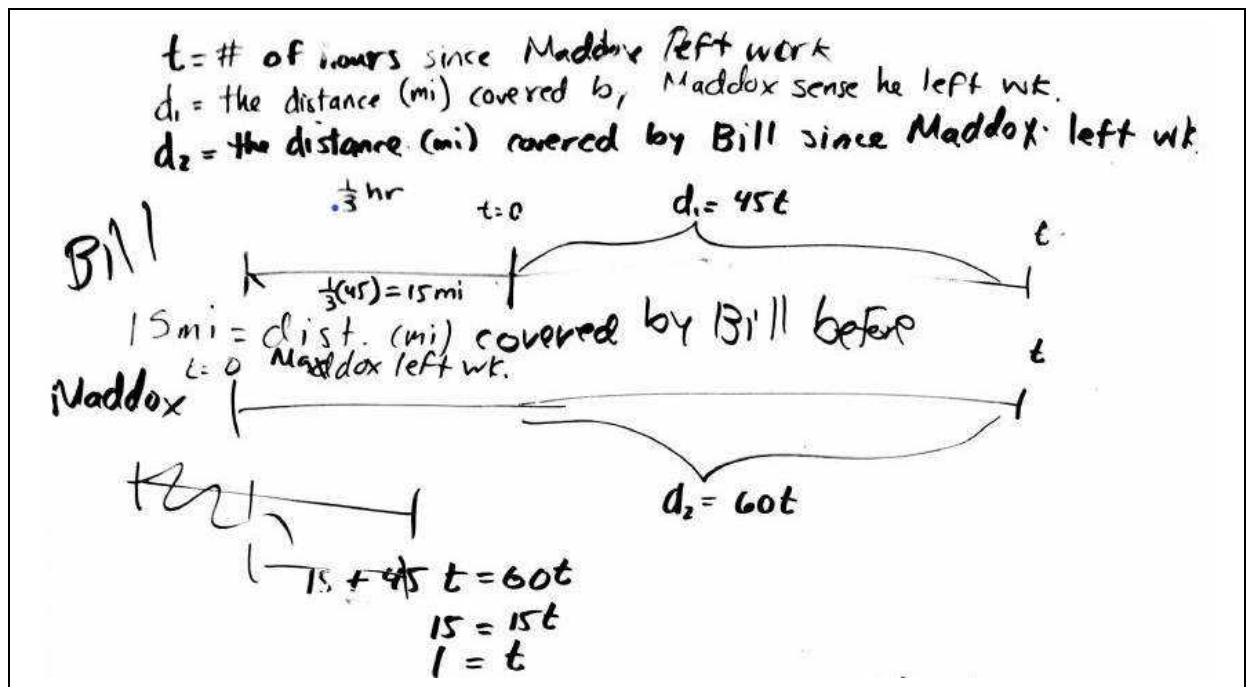 t = # of hours since Maddox left work
d₁ = the distance (mi) covered by Maddox sense he left wk.
d₂ = the distance (mi) covered by Bill since Maddox left wk
1/3 hr
t=0
d₁ = 45t
t
Bill
1/3(45) = 15mi
15mi = dist. (mi) covered by Bill before
Maddox left wk.
t = 0
t
Maddox
d₂ = 60t
15 + 45 t = 60t
15 = 15t
1 = t